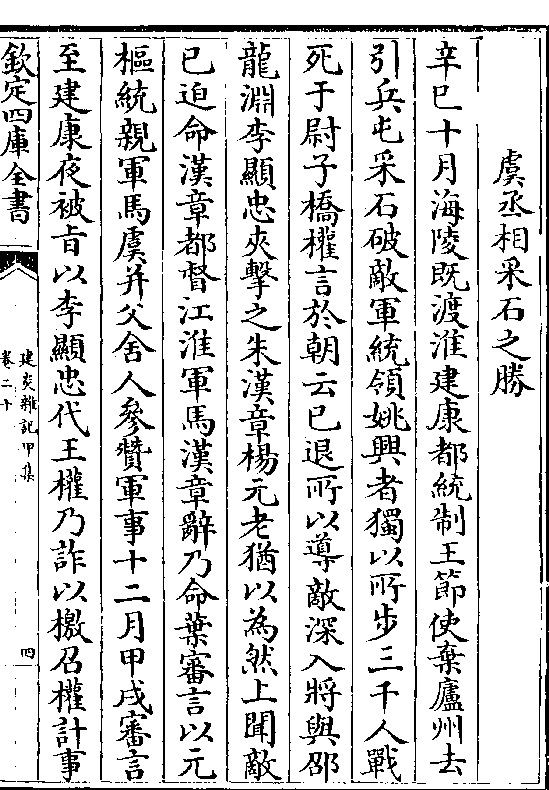 虞丞相采石之勝
辛巳十月海陵既渡淮建康都統制王節使棄廬州去
引兵屯采石破敵軍統領姚興者獨以所步三千人戰
死于尉子橋權言於朝云已退所以導敵深入將與邵
龍淵李顯忠夾擊之朱漢章楊元老猶以為然上聞敵
已迫命漢章都督江淮軍馬漢章辭乃命葉審言以元
樞統親軍馬虞并父舍人參贊軍事十二月甲戌審言
至建康夜被㫖以李顯忠代王權乃詐以檄召權計事
欽定四庫全書
建炎雜記甲集
卷二十
四